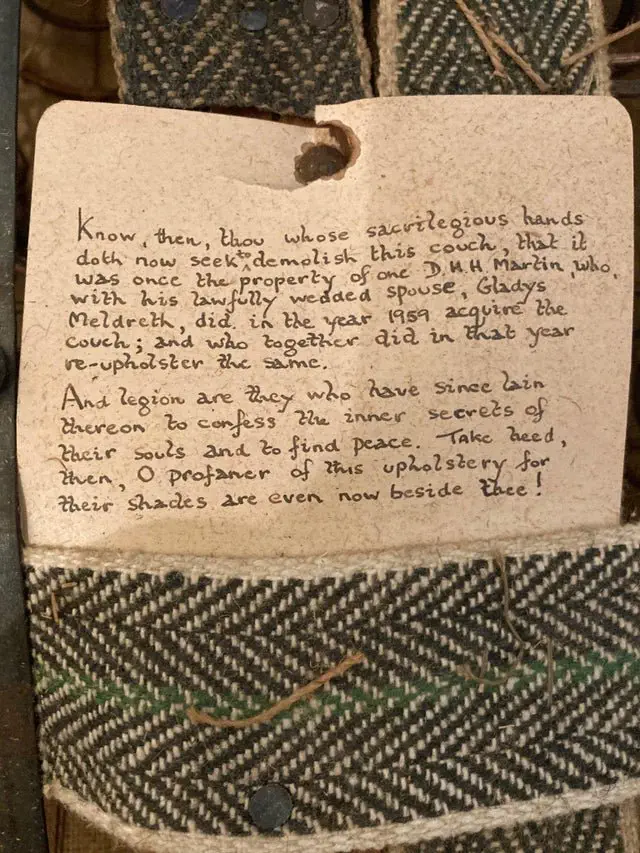 Know, then, thou whose sacrilegious hands
doth now seek to demolish this couch, that it
was once the property of one D.H.H. Martin, who,
with his lawfully wedded spouse, Gladys
Meldreth, did in the year 1959 acquire the
couch; and who together did in that year
re-upholster the same.
And legion are they who have since lain
thereon to confess the inner secrets of
their souls and to find peace. Take heed,
then, O profaner of this upholstery for
their shades are even now beside thee!